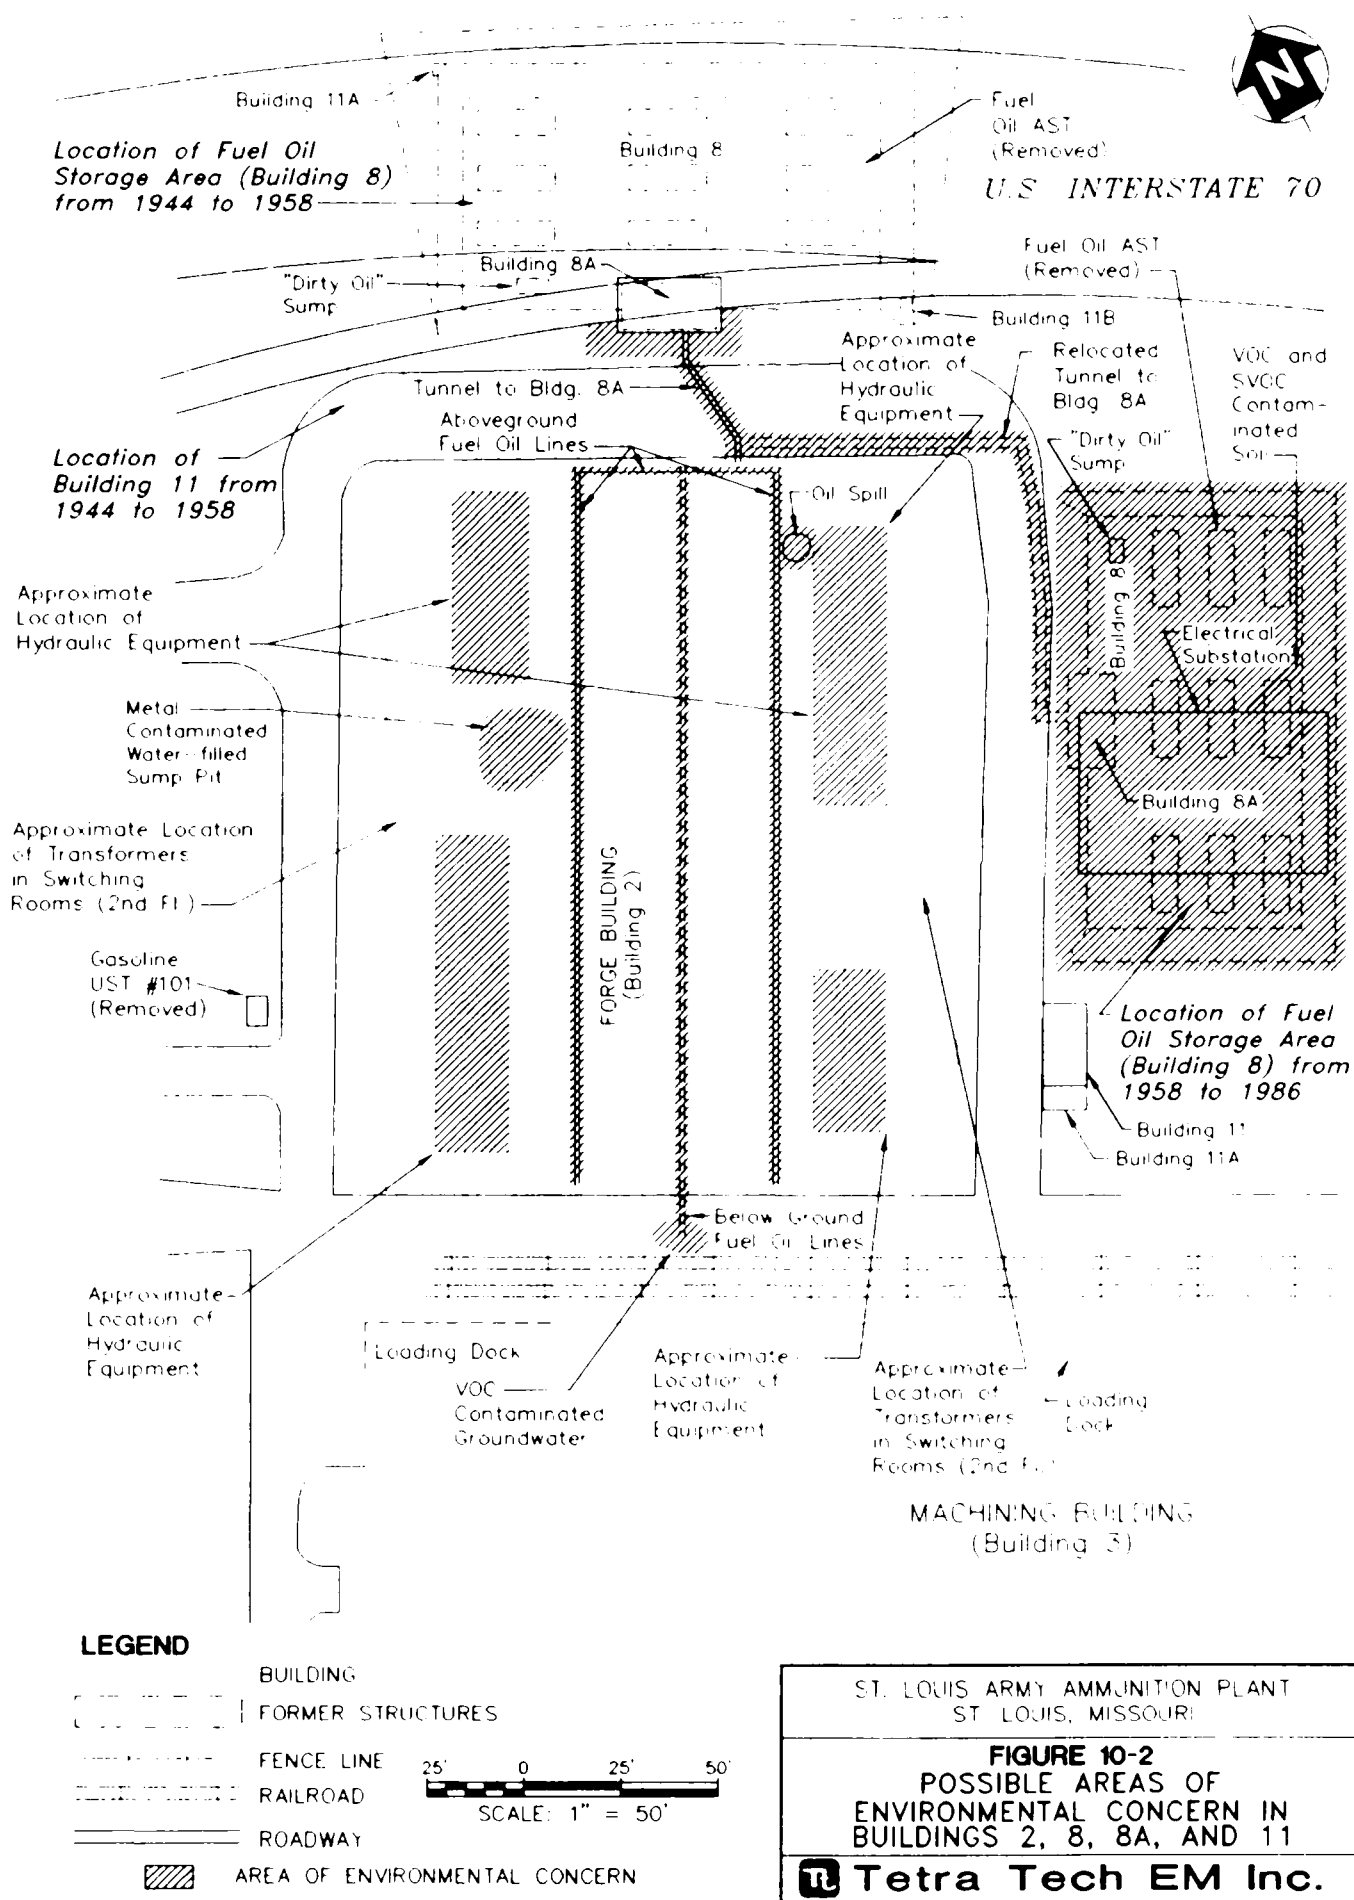 N
Building 11A
Fuel
Oil AST
(Removed)
Location of Fuel Oil
Storage Area (Building 8)
from 1944 to 1958
Building 8
U.S INTERSTATE 70
Fuel Oil AST
(Removed)
Building 8A
"Dirty Oil"
Sump
Building 11B
Approximate
Location of
Hydraulic
Equipment
Relocated
Tunnel to
Bldg 8A
VOC and
SVOC
Contam-
inated
Soil
Tunnel to Bldg. 8A
Aboveground
Fuel Oil Lines
"Dirty Oil"
Sump
Location of
Building 11 from
1944 to 1958
Oil Spill
Building 8
Approximate
Location of
Hydraulic Equipment
Electrical
Substation
Metal
Contaminated
Water-filled
Sump Pit
Building 8A
Approximate Location
of Transformers
in Switching
Rooms (2nd Fl.)
FORGE BUILDING
(Building 2)
Gasoline
UST #101
(Removed)
Location of Fuel
Oil Storage Area
(Building 8) from
1958 to 1986
Building 11
Building 11A
Below Ground
Fuel Oil Lines
Approximate
Location of
Hydraulic
Equipment
Loading Dock
VOC
Contaminated
Groundwater
Approximate
Location of
Hydraulic
Equipment
Approximate
Location of
Transformers
in Switching
Rooms (2nd Fl.)
Loading
Dock
MACHINING BUILDING
(Building 3)
LEGEND
BUILDING
FORMER STRUCTURES
FENCE LINE
RAILROAD
ROADWAY
AREA OF ENVIRONMENTAL CONCERN
25' 0 25' 50'
SCALE: 1" = 50'
ST. LOUIS ARMY AMMUNITION PLANT
ST LOUIS, MISSOURI
FIGURE 10-2
POSSIBLE AREAS OF
ENVIRONMENTAL CONCERN IN
BUILDINGS 2, 8, 8A, AND 11
Tetra Tech EM Inc.